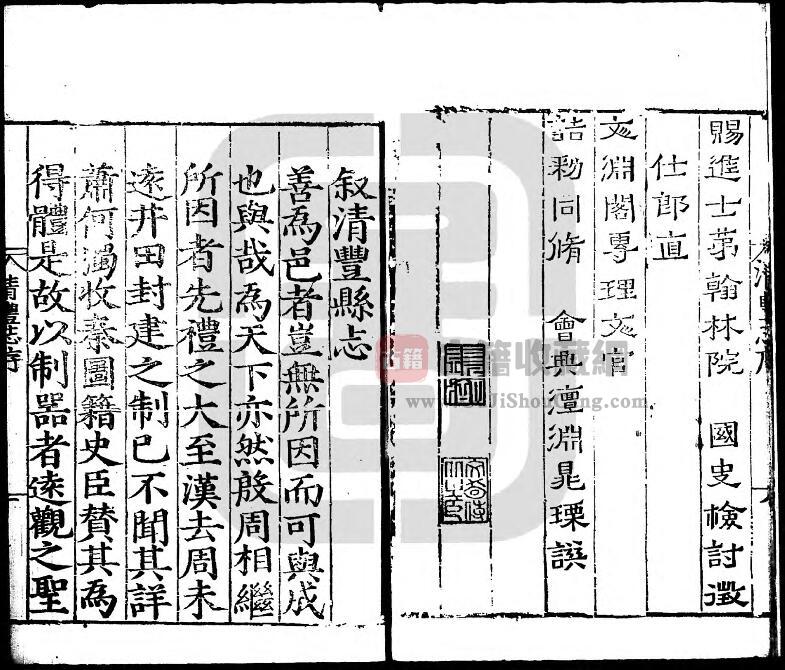 賜進士苐翰林院　國史檢討徵
仕郎直
文淵閣專理文官
誥勅同脩　會典澶淵晁瑮譔
叙清豐縣志
善為邑者豈無所因而可與成
也與哉為天下亦然殷周相繼
所因者先禮之大至漢去周未
逺井田封建之制已不聞其詳
蕭何獨收秦圖籍史臣賛其為
得體是故以制器者逺觀之聖
清豐志序
古籍
古籍收藏網